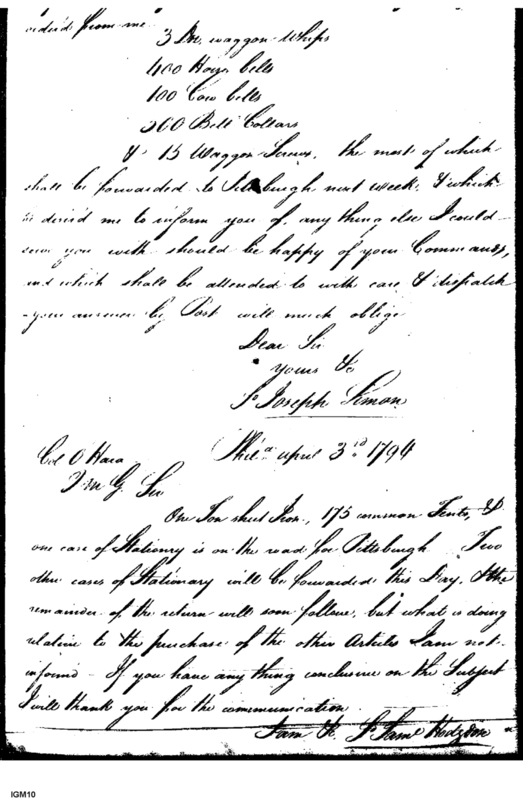 ordered from me
3 Doz waggon Whips
400 Horse bells
100 Cow bells
500 Bell Collars
& 15 Waggon Screws, the most of which
shall be forwarded to Pittsburgh next week, & which
he desired me to inform you of, any thing else I could
serve you with should be happy of your Commands,
and which shall be attended to with care & dispatch
your answer by Post will much oblige
Dear Sir
yours &c
Sd Joseph Simon
Phila april 3rd 1794
Col O'Hara
Q M G. Sir
One Ton sheet Iron, 175 common Tents, &
one case of Stationry is on the road for Pittsburgh Two
other cases of Stationary will be forwarded this Day, & the
remainder of the return will soon follow, but what is doing
relative to the purchase of the other Articles I am not
informd - If you have any thing conclusive on the Subject
I will thank you for the communication
I am &c Sd Saml Hodgdon
IGM10